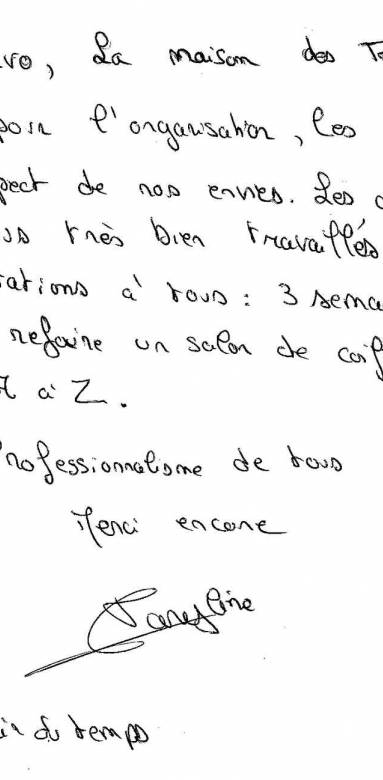 vo, La maison des T
pour l'organisation, les
pect de nos envies. Les
us très bien travaillés
ations à tous : 3 sema
refaire un salon de coif
A à Z.
rofessionnalisme de tous
Merci encore
ir du temps